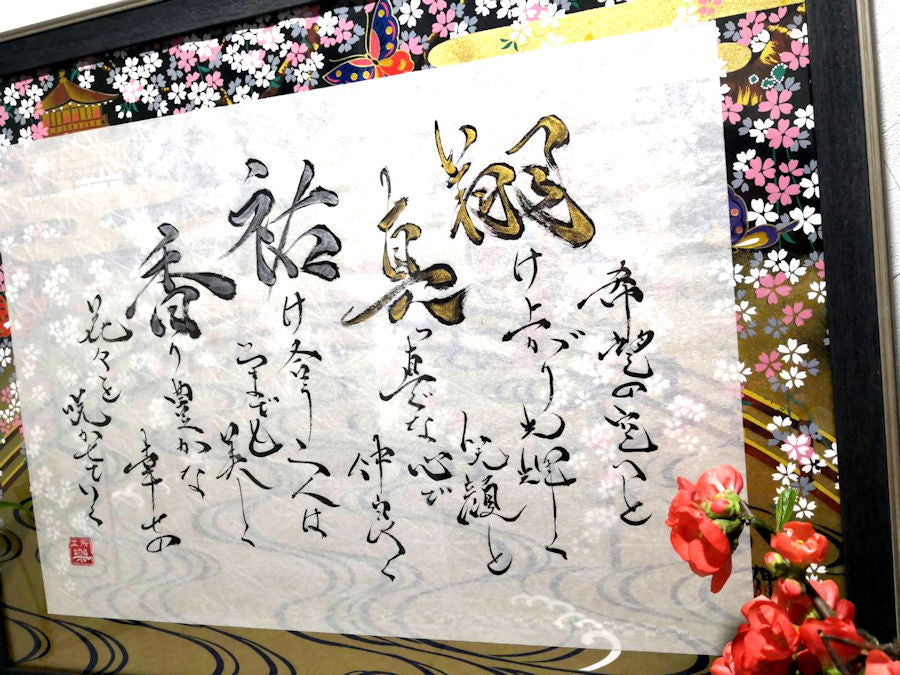 希望の空へと
翔け上がり光輝く
笑顔と
真っ直ぐな心で
仲良く
祐け合う二人は
いつまでも美しく
香り豊かな
幸せの
花々を咲かせていく